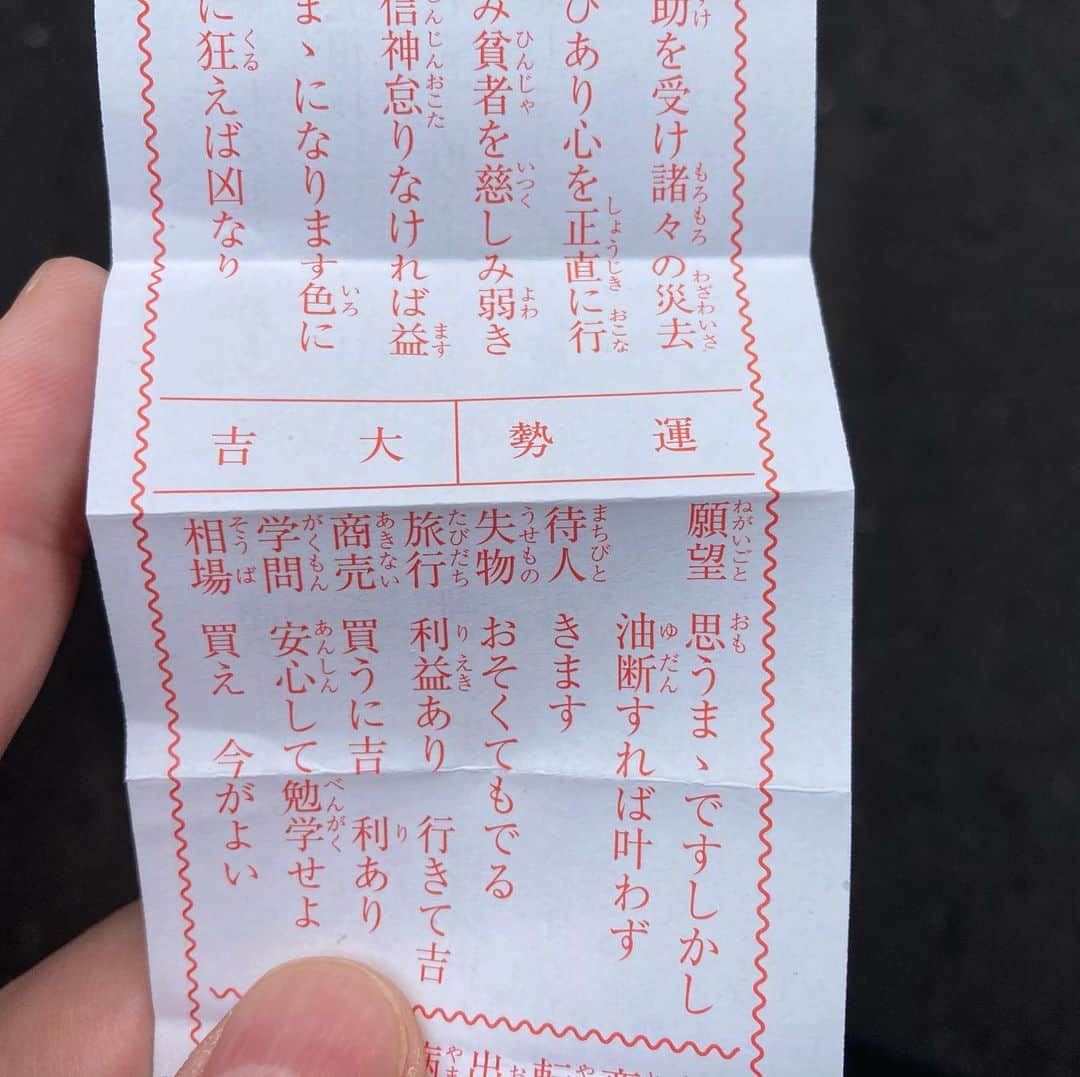 助を受け諸々の災去
ひあり心を正直に行
み貧者を慈しみ弱き
信神怠りなければ益
まゝになります色に
に狂えば凶なり
運勢 大吉
願望 思うまゝですしかし
油断すれば叶わず
待人 きます
失物 おそくてもでる
旅行 利益あり 行きて吉
商売 買うに吉 利あり
学問 安心して勉学せよ
相場 買え 今がよい